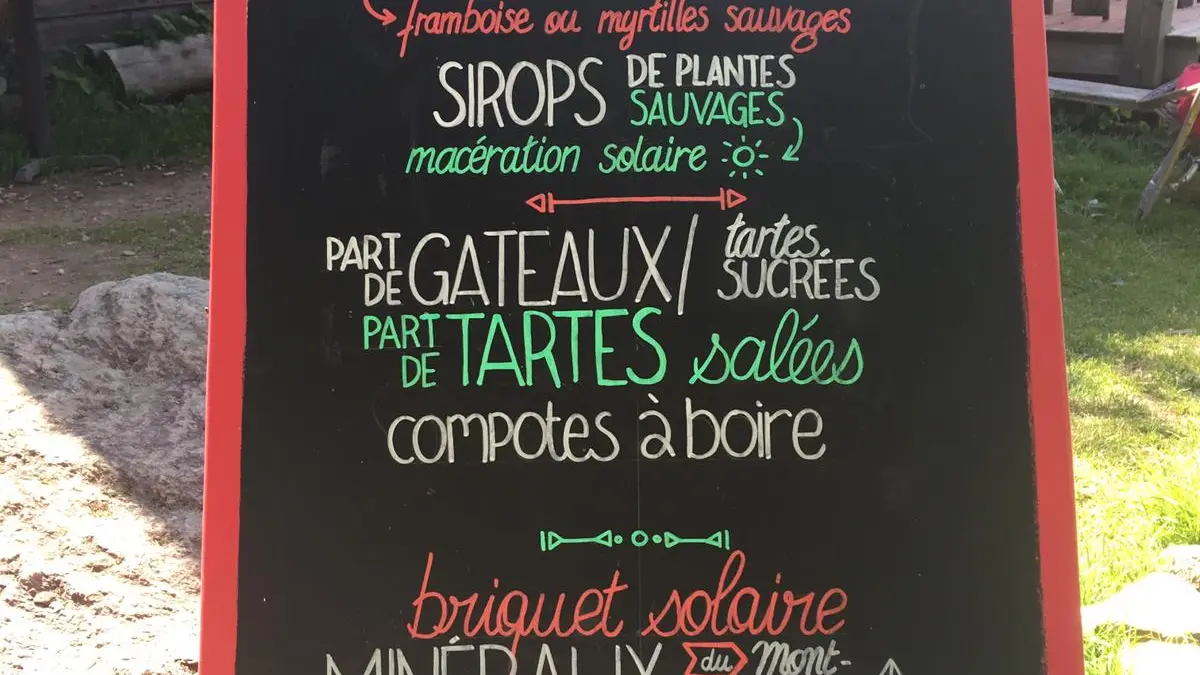 framboise ou myrtilles sauvages
SIROPS DE PLANTES SAUVAGES
macération solaire
PART DE GATEAUX / tartes SUCRÉES
PART DE TARTES salées
compotes à boire
briquet solaire
MINÉRAUX du Mont-